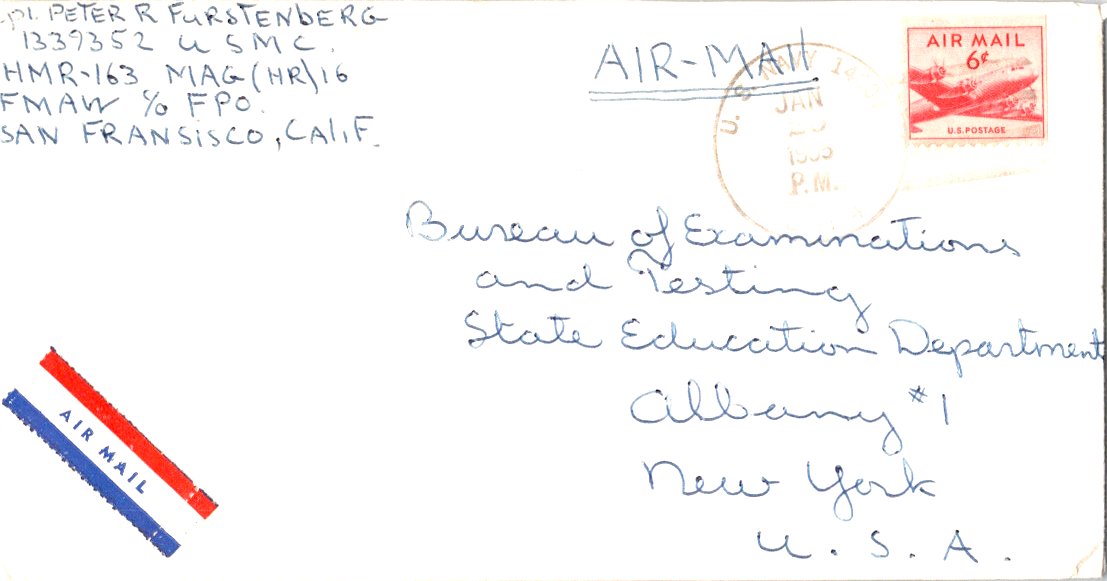 pl. PETER R FURSTENBERG
1339352 U S M C.
HMR-163 MAG(HR)16
FMAW % FPO.
SAN FRANSISCO, CALIF.
AIR-MAIL
U.S. NAVY 14
JAN
P.M.
AIR MAIL
6¢
U.S. POSTAGE
Bureau of Examinations
and Testing
State Education Department
Albany #1
New York
U. S. A.
AIR MAIL